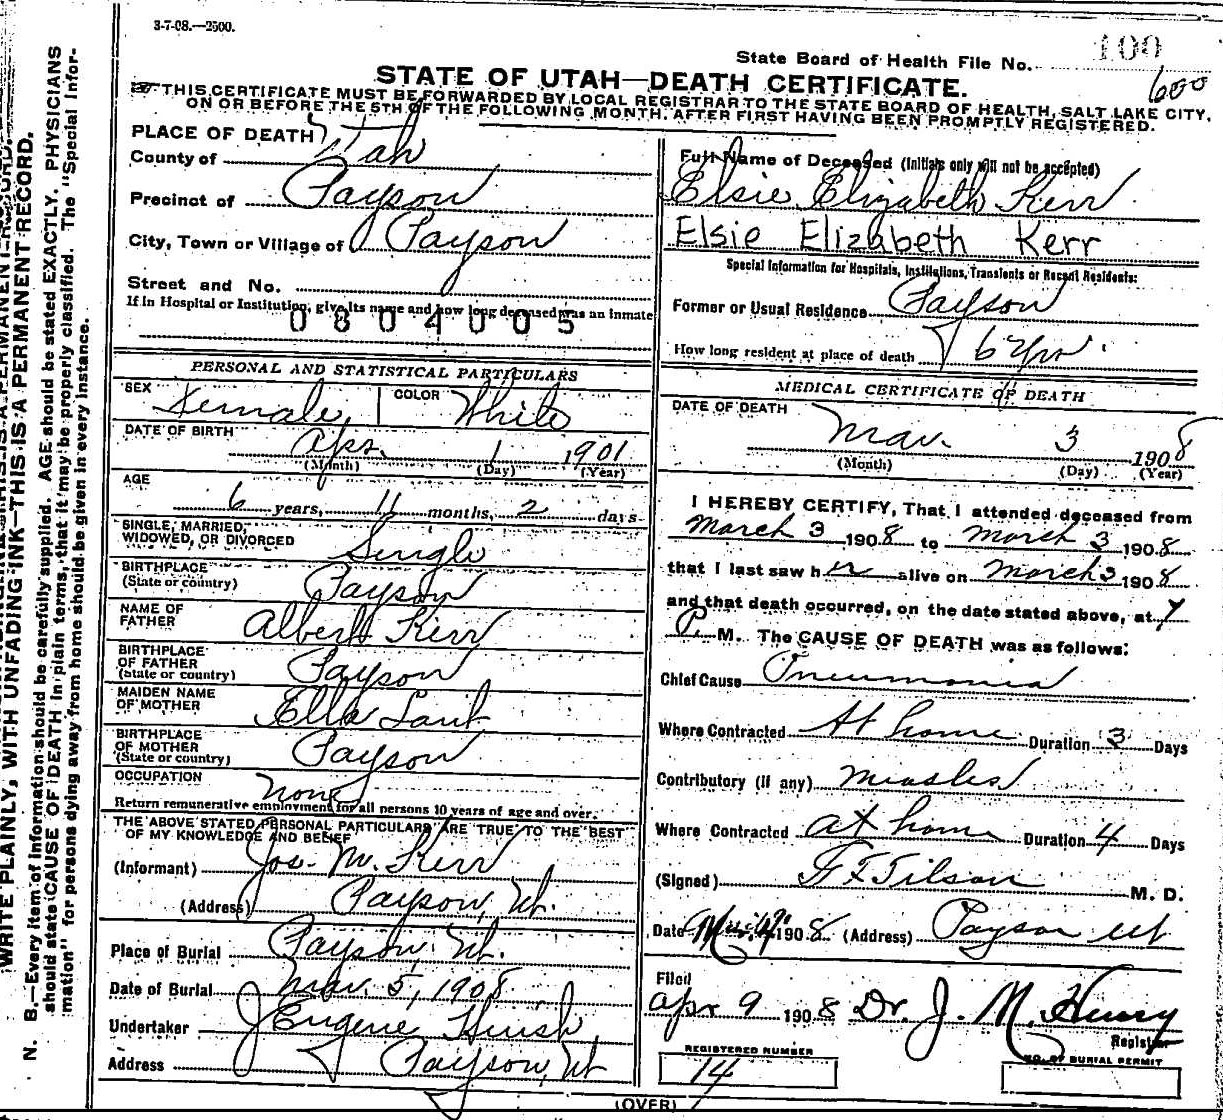 3-7-08.—2500.
100
State Board of Health File No.
600
STATE OF UTAH—DEATH CERTIFICATE.
THIS CERTIFICATE MUST BE FORWARDED BY LOCAL REGISTRAR TO THE STATE BOARD OF HEALTH, SALT LAKE CITY,
ON OR BEFORE THE 5TH OF THE FOLLOWING MONTH, AFTER FIRST HAVING BEEN PROMPTLY REGISTERED.
PLACE OF DEATH
County of Utah
Precinct of Payson
City, Town or Village of Payson
Street and No.
If in Hospital or Institution, give its name and how long deceased was an inmate
0804005
PERSONAL AND STATISTICAL PARTICULARS
SEX Female COLOR White
DATE OF BIRTH
Apr. 1 1901
(Month) (Day) (Year)
AGE
6 years, 11 months, 2 days
SINGLE, MARRIED,
WIDOWED, OR DIVORCED Single
BIRTHPLACE
(State or country) Payson
NAME OF
FATHER Albert Kerr
BIRTHPLACE
OF FATHER
(State or country) Payson
MAIDEN NAME
OF MOTHER Ella
BIRTHPLACE
OF MOTHER
(State or country) Payson
OCCUPATION None
Return remunerative employment for all persons 10 years of age and over.
THE ABOVE STATED PERSONAL PARTICULARS ARE TRUE TO THE BEST
OF MY KNOWLEDGE AND BELIEF
(Informant) Jos. M. Kerr
(Address) Payson, Ut.
Place of Burial Payson, Ut.
Date of Burial Mar. 5, 1908
Undertaker J Eugene
Address Payson, Ut
Full Name of Deceased (Initials only will not be accepted)
Elsie Elizabeth Kerr
Elsie Elizabeth Kerr
Special Information for Hospitals, Institutions, Transients or Recent Residents:
Former or Usual Residence Payson
How long resident at place of death 6 yrs.
MEDICAL CERTIFICATE OF DEATH
DATE OF DEATH
Mar. 3 1908
(Month) (Day) (Year)
I HEREBY CERTIFY, That I attended deceased from
March 3 1908 to March 3 1908
that I last saw her alive on March 3 1908
and that death occurred, on the date stated above, at 7
P. M. The CAUSE OF DEATH was as follows:
Chief Cause Pneumonia
Where Contracted At home Duration 3 Days
Contributory (if any) Measles
Where Contracted at home Duration 4 Days
(Signed) G F Tilson M. D.
Date 1908 (Address) Payson Ut
Filed
Apr 9 1908 Dr. J. M. Henry
Registrar
REGISTERED NUMBER
14
NO. OF BURIAL PERMIT
(OVER)
WRITE PLAINLY, WITH UNFADING INK—THIS IS A PERMANENT RECORD.
N. B.—Every item of information should be carefully supplied. AGE should be stated EXACTLY. PHYSICIANS
should state CAUSE OF DEATH in plain terms, that it may be properly classified. The "Special Infor-
mation" for persons dying away from home should be given in every instance.